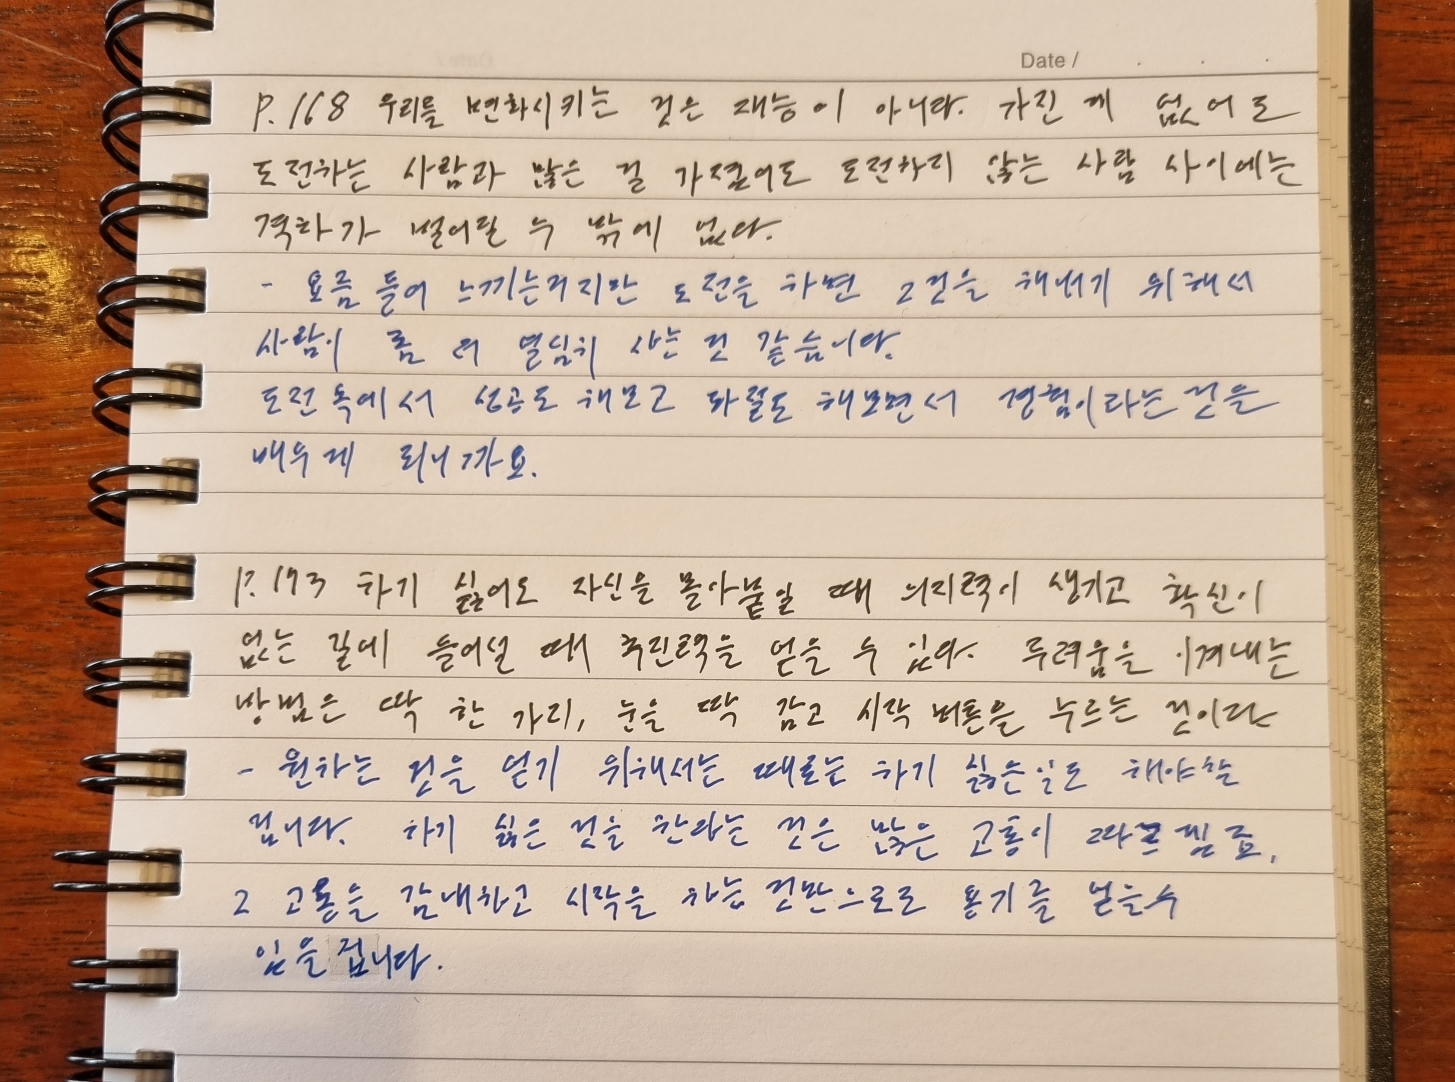 Date /
P.168 우리를 변화시키는 것은 재능이 아니다. 가진 게 없어도
도전하는 사람과 많은 걸 가졌어도 도전하지 않는 사람 사이에는
격차가 벌어질 수 밖에 없다.
- 요즘 들어 느끼는거지만 도전을 하면 그것을 해내기 위해서
사람이 좀 더 열심히 사는 것 같습니다.
도전 속에서 성공도 해보고 좌절도 해보면서 경험이라는 것을
배우게 되니까요.
P.173 하기 싫어도 자신을 몰아붙일 때 의지력이 생기고 확신이
없는 길에 들어설 때 추진력을 얻을 수 있다. 두려움을 이겨내는
방법은 딱 한 가지, 눈을 딱 감고 시작 버튼을 누르는 것이다
- 원하는 것을 얻기 위해서는 때로는 하기 싫은일도 해야할
겁니다. 하기 싫은 것을 한다는 것은 많은 고통이 따르겠죠,
그 고통을 감내하고 시작을 하는 것만으로도 용기를 얻을수
있을 겁니다.